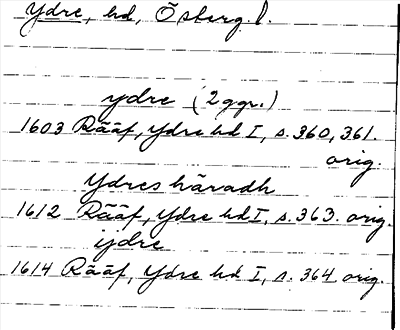 Ydre, hd, Österg. l.
ydre (2 ggr.)
1603 Rääf, Ydre hd I, s. 360, 361.
orig.
Ydres häradh
1612 Rääf, Ydre hd I, s. 363. orig.
ijdre
1614 Rääf, Ydre hd I, s. 364 orig.